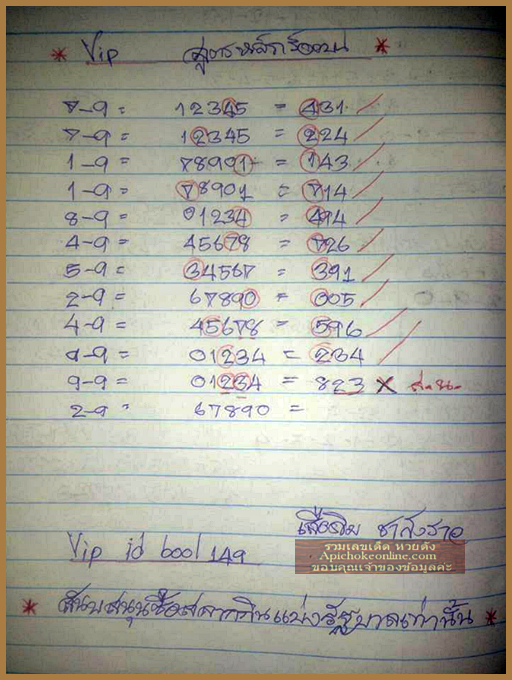 * Vip สูตรหลักร้อยบน *
7-9 = 12345 = 431
7-9 = 12345 = 224
1-9 = 78901 = 143
1-9 = 78901 = 714
8-9 = 01234 = 494
4-9 = 45678 = 726
5-9 = 34567 = 391
2-9 = 67890 = 005
4-9 = 45678 = 596
9-9 = 01234 = 234
9-9 = 01234 = 823 ×
2-9 = 67890 =
Vip id bool 149
รวมเลขเด็ด หวยดัง
Apichokeonline.com
ขอบคุณเจ้าของข้อมูลค่ะ
* สนับสนุนซื้อสลากกินแบ่งรัฐบาลเท่านั้น *